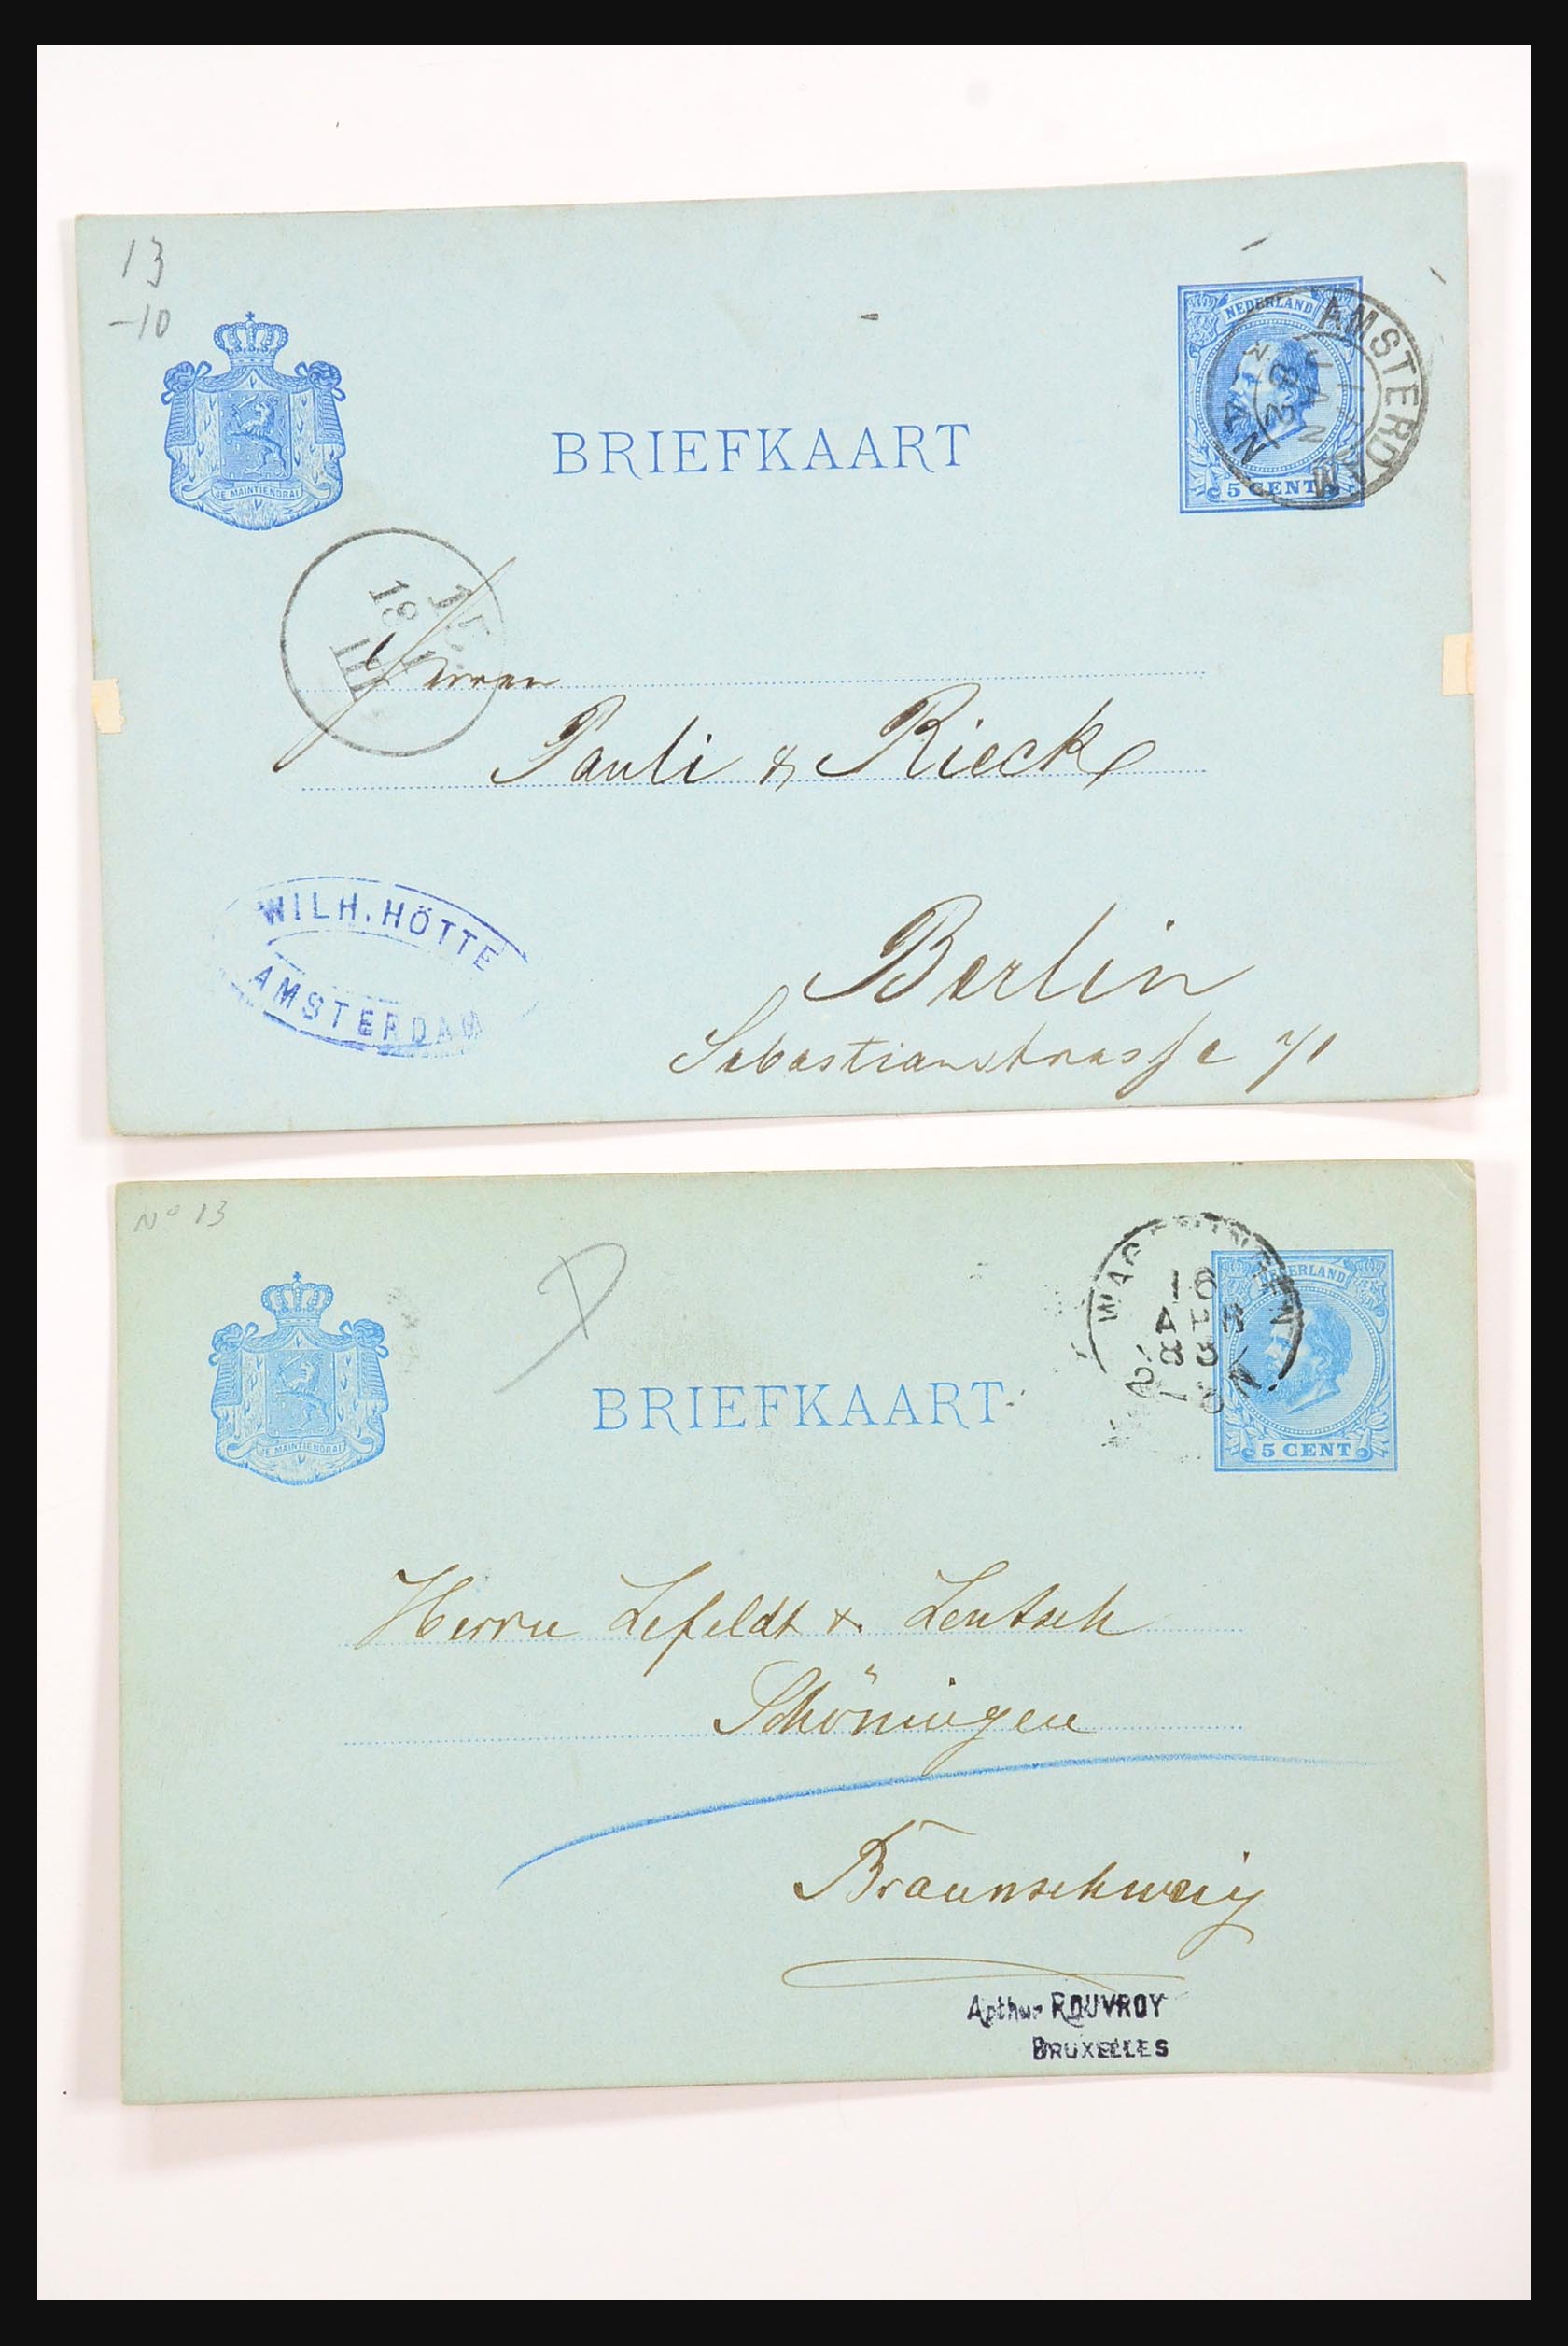 13
-10
JE MAINTIENDRAI
BRIEFKAART
NEDERLAND
5 CENT
AMSTERDAM
JAN
83
15
18
III
Herren
Pauli & Rieck
WILH. HÖTTE
AMSTERDAM
Berlin
Sebastianstrasse 71
No 13
JE MAINTIENDRAI
BRIEFKAART
NEDERLAND
5 CENT
WAGENINGEN
16
APR
83
Herrn Lefeldt & Lentsch
Schöningen
Braunschweig
Arthur ROUVROY
BRUXELLES